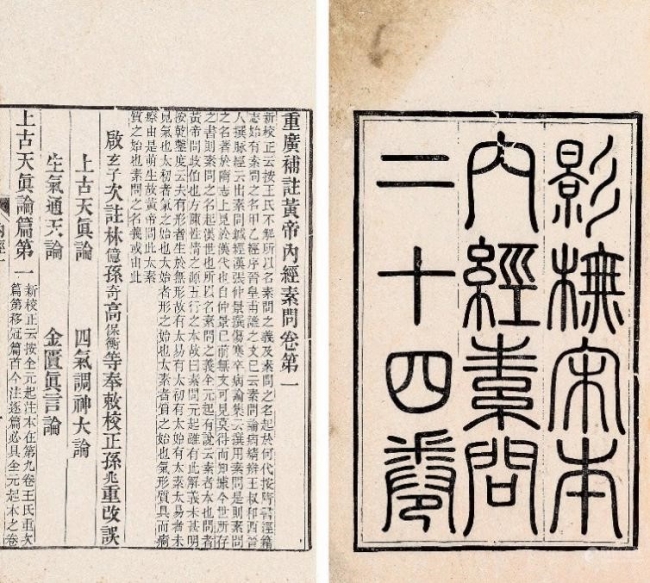 影橅宋本
內經素問
二十四卷
重廣補註黃帝內經素問卷第一
新校正云按王氏不解所以名素問之義及素問之名起於何代按隋書經籍
志始有素問之名甲乙經序晉皇甫謐之文已云素問論病精辨王叔和西晉
人撰脉經云出素問鍼經漢張仲景撰傷寒卒病論集云撰用素問是則素問
之名著於隋志上見於漢代也自仲景已前無文可見莫得而知據今世所存
之書則素問之名起漢世也所以名素問之義全元起有說云素者本也問者
黃帝問岐伯也方陳性情之源五行之本故曰素問元起雖有此解義未甚明
按乾鑿度云夫有形者生於無形故有太易有太初有太始有太素太易者未
見氣也太初者氣之始也太始者形之始也太素者質之始也氣形質具而痾
瘵由是萌生故黃帝問此太素
質之始也素問之名義或由此
啟玄子次註林億孫奇高保衡等奉敕校正孫兆重改誤
上古天眞論 四氣調神大論
生氣通天論 金匱眞言論
上古天眞論篇第一 新校正云按全元起注本在第九卷王氏重次
篇第移冠篇首今注逐篇必具全元起本之卷